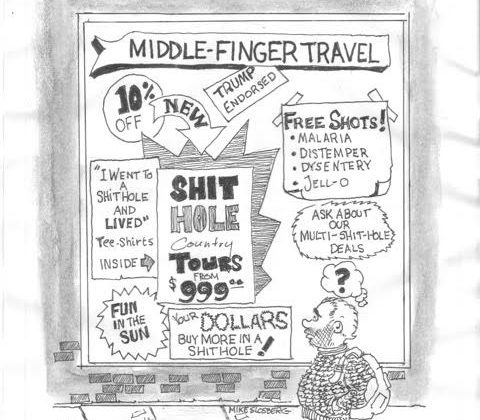 MIDDLE-FINGER TRAVEL
10%
OFF
NEW
TRUMP
ENDORSED
FREE SHOTS!
• MALARIA
• DISTEMPER
• DYSENTERY
• JELL-O
"I WENT TO
A
SHITHOLE
AND
LIVED"
TEE-SHIRTS
INSIDE
SHIT
HOLE
Country
TOURS
FROM
$999.00
ASK ABOUT
OUR
MULTI-SHIT-HOLE
DEALS
FUN
IN THE
SUN
YOUR DOLLARS
BUY MORE IN A
SHITHOLE!
?
MIKE SLOSBERG